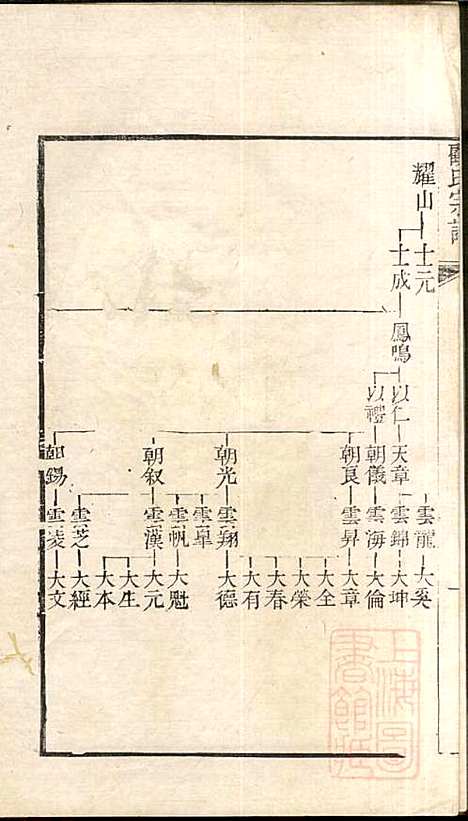 氏宗譜
耀山
士元
士成
鳳鳴
以仁
以禮
天章
朝儀
朝良
朝光
朝叙
朝錫
雲龍
雲錦
雲海
雲昇
雲翔
雲皐
雲帆
雲漢
雲芝
雲凌
大奚
大坤
大倫
大章
大全
大榮
大春
大有
大德
大魁
大元
大生
大本
大經
大文
上海圖
書館藏